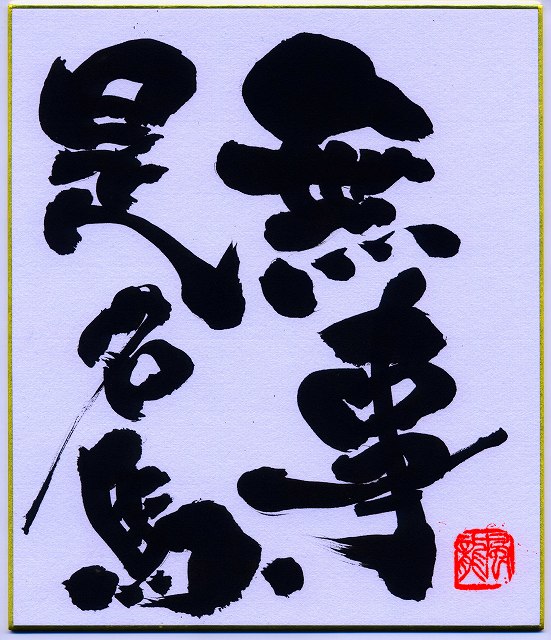 無事
是名馬